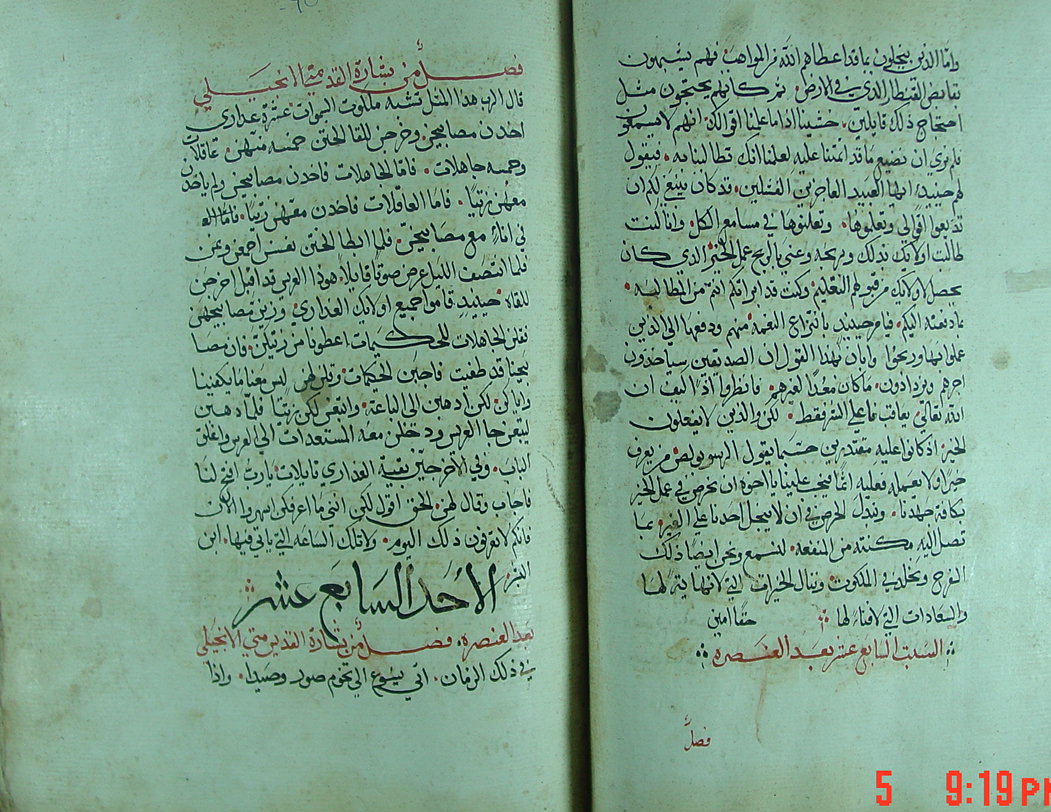 واما الذين يبخلون بما قد اعطاهم الله من المواهب فهم يشبهون
القنطار الذي في الارض ثم كانهم يحتجون مثل
احتجاج ذلك قايلين خشينا اذا ما علمنا اقوالك انهم لا يسمعو
فلم نرى ان نضيع ما قد ائتمنا عليه لعلمنا انك تطالبنا به فيقول
لهم حينيد ايها العبيد العاجزين الفشلين قد كان ينبغي لكم ان
اقوالي وتعلموها وتعلنوها في مسامع الكل وانا كنت
طالبت اولايك بذلك وعني بالربح عمل الخير الذي كان
يحصل اوليك من قبولهم التعليم وكنت قد ابراتكم انتم من المطالبه
بما دفعته اليكم فيامر حينيد بانتزاع النعمه منهم ودفعها الي الذين
عملوا بها وربحوا وابان بهذا القول ان الصديقين سياخدون
اجرهم ويزدادون ما كان معدا لغيرهم فانظروا اذا كيف ان
الله تعالى يعاقب ما علي الشر فقط لكن والذين لا يفعلون
الخير اذ كانوا عليه مقتدرين حسبما يقول الرسول بولص من يعرف
خيرا ولا يعمله فعليه اثما يجب علينا يا اخوه ان نحرص في عمل الخير
بكافة جهدنا ونبذل الحرص في ان لا يبخل احدنا علي الغير بما
تصل اليه مكنته من المنفعه لنسمع ونحن ايضا ذلك
الفرح وندخل في الملكوت وننال الخيرات التي لا نهاية لها
والسعادات التي لا فناء لها حقا امين
السبت السابع عشر بعد العنصرة
فصل
فصل من بشارة القديس متى الانجيلي
قال الرب هذا المثل تشبه ملكوت السموات عشرة عداري
اخدن مصابيحهن وخرجن للقا الختن خمسه منهن عاقلات
وخمسه جاهلات فاما الجاهلات فاخدن مصابيحهن ولم ياخدن
معهن زيتا فاما العاقلات فاخدن معهن زيتا
في اناء مع مصابيحهن فلما ابطا الختن نعسن اجمعهن ونمن
فلما انتصف الليل عرض صوتا قايلا هوذا العريس قد اقبل اخرجن
للقاه حينيد قاموا جميع اوليك العداري وزين مصابيحهن
فقلن الجاهلات للحكيمات اعطونا من زيتكن فان مصا
بيحنا قد طفيت فاجبن الحكيمات وقلن لهن ليس معنا ما يكفينا
واياكن لكن ادهبن الي الباعه وابتعن لكن زيتا فلما دهبن
ليبتعن جا العريس ودخلن معه المستعدات الي العرس واغلق
الباب وفي الاخر جين بقية العداري قايلات يا رب افتح لنا
فاجاب وقال لهن الحق اقول لكن انني ما اعرفكن اسهروا الان
فانكم لا تعرفون ذلك اليوم ولا تلك الساعه التي ياتي فيها ابن
البشر
الاحد السابع عشر
بعد العنصره فصل من بشارة القديس متى الانجيلي
في ذلك الزمان اتي يسوع الي تخوم صور وصيدا واذا
5 9:19 PM